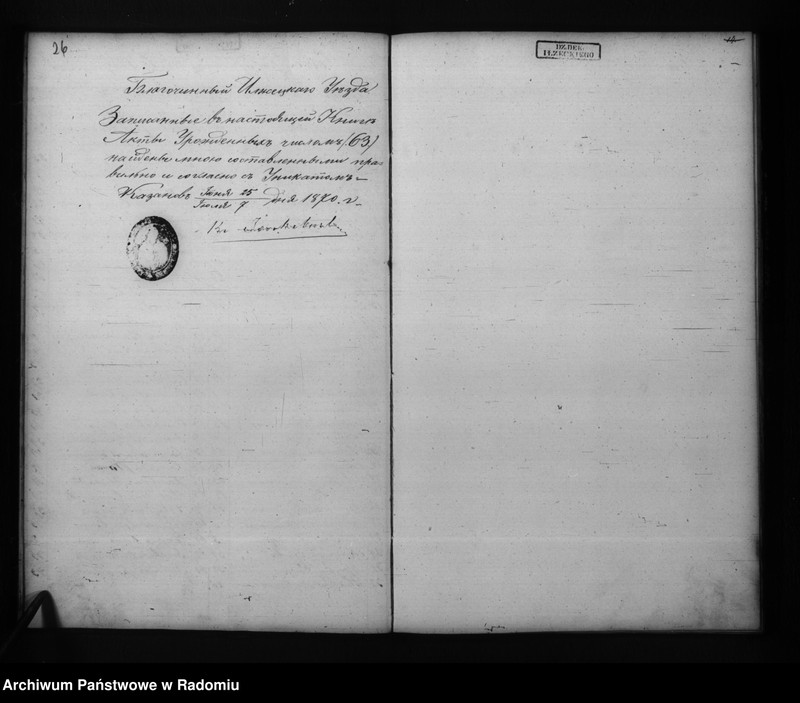 26
DZ.DEK.
IŁŻECKIEGO
Благочинный Илжецкаго Уѣзда
Записанные въ настоящей Книгѣ
Акты Урожденныхъ числомъ (63)
найдены мною составленными пра-
вильно и согласно съ Уникатомъ
Казановъ Іюня 25 / Іюля 7 дня 1870. г.
Archiwum Państwowe w Radomiu